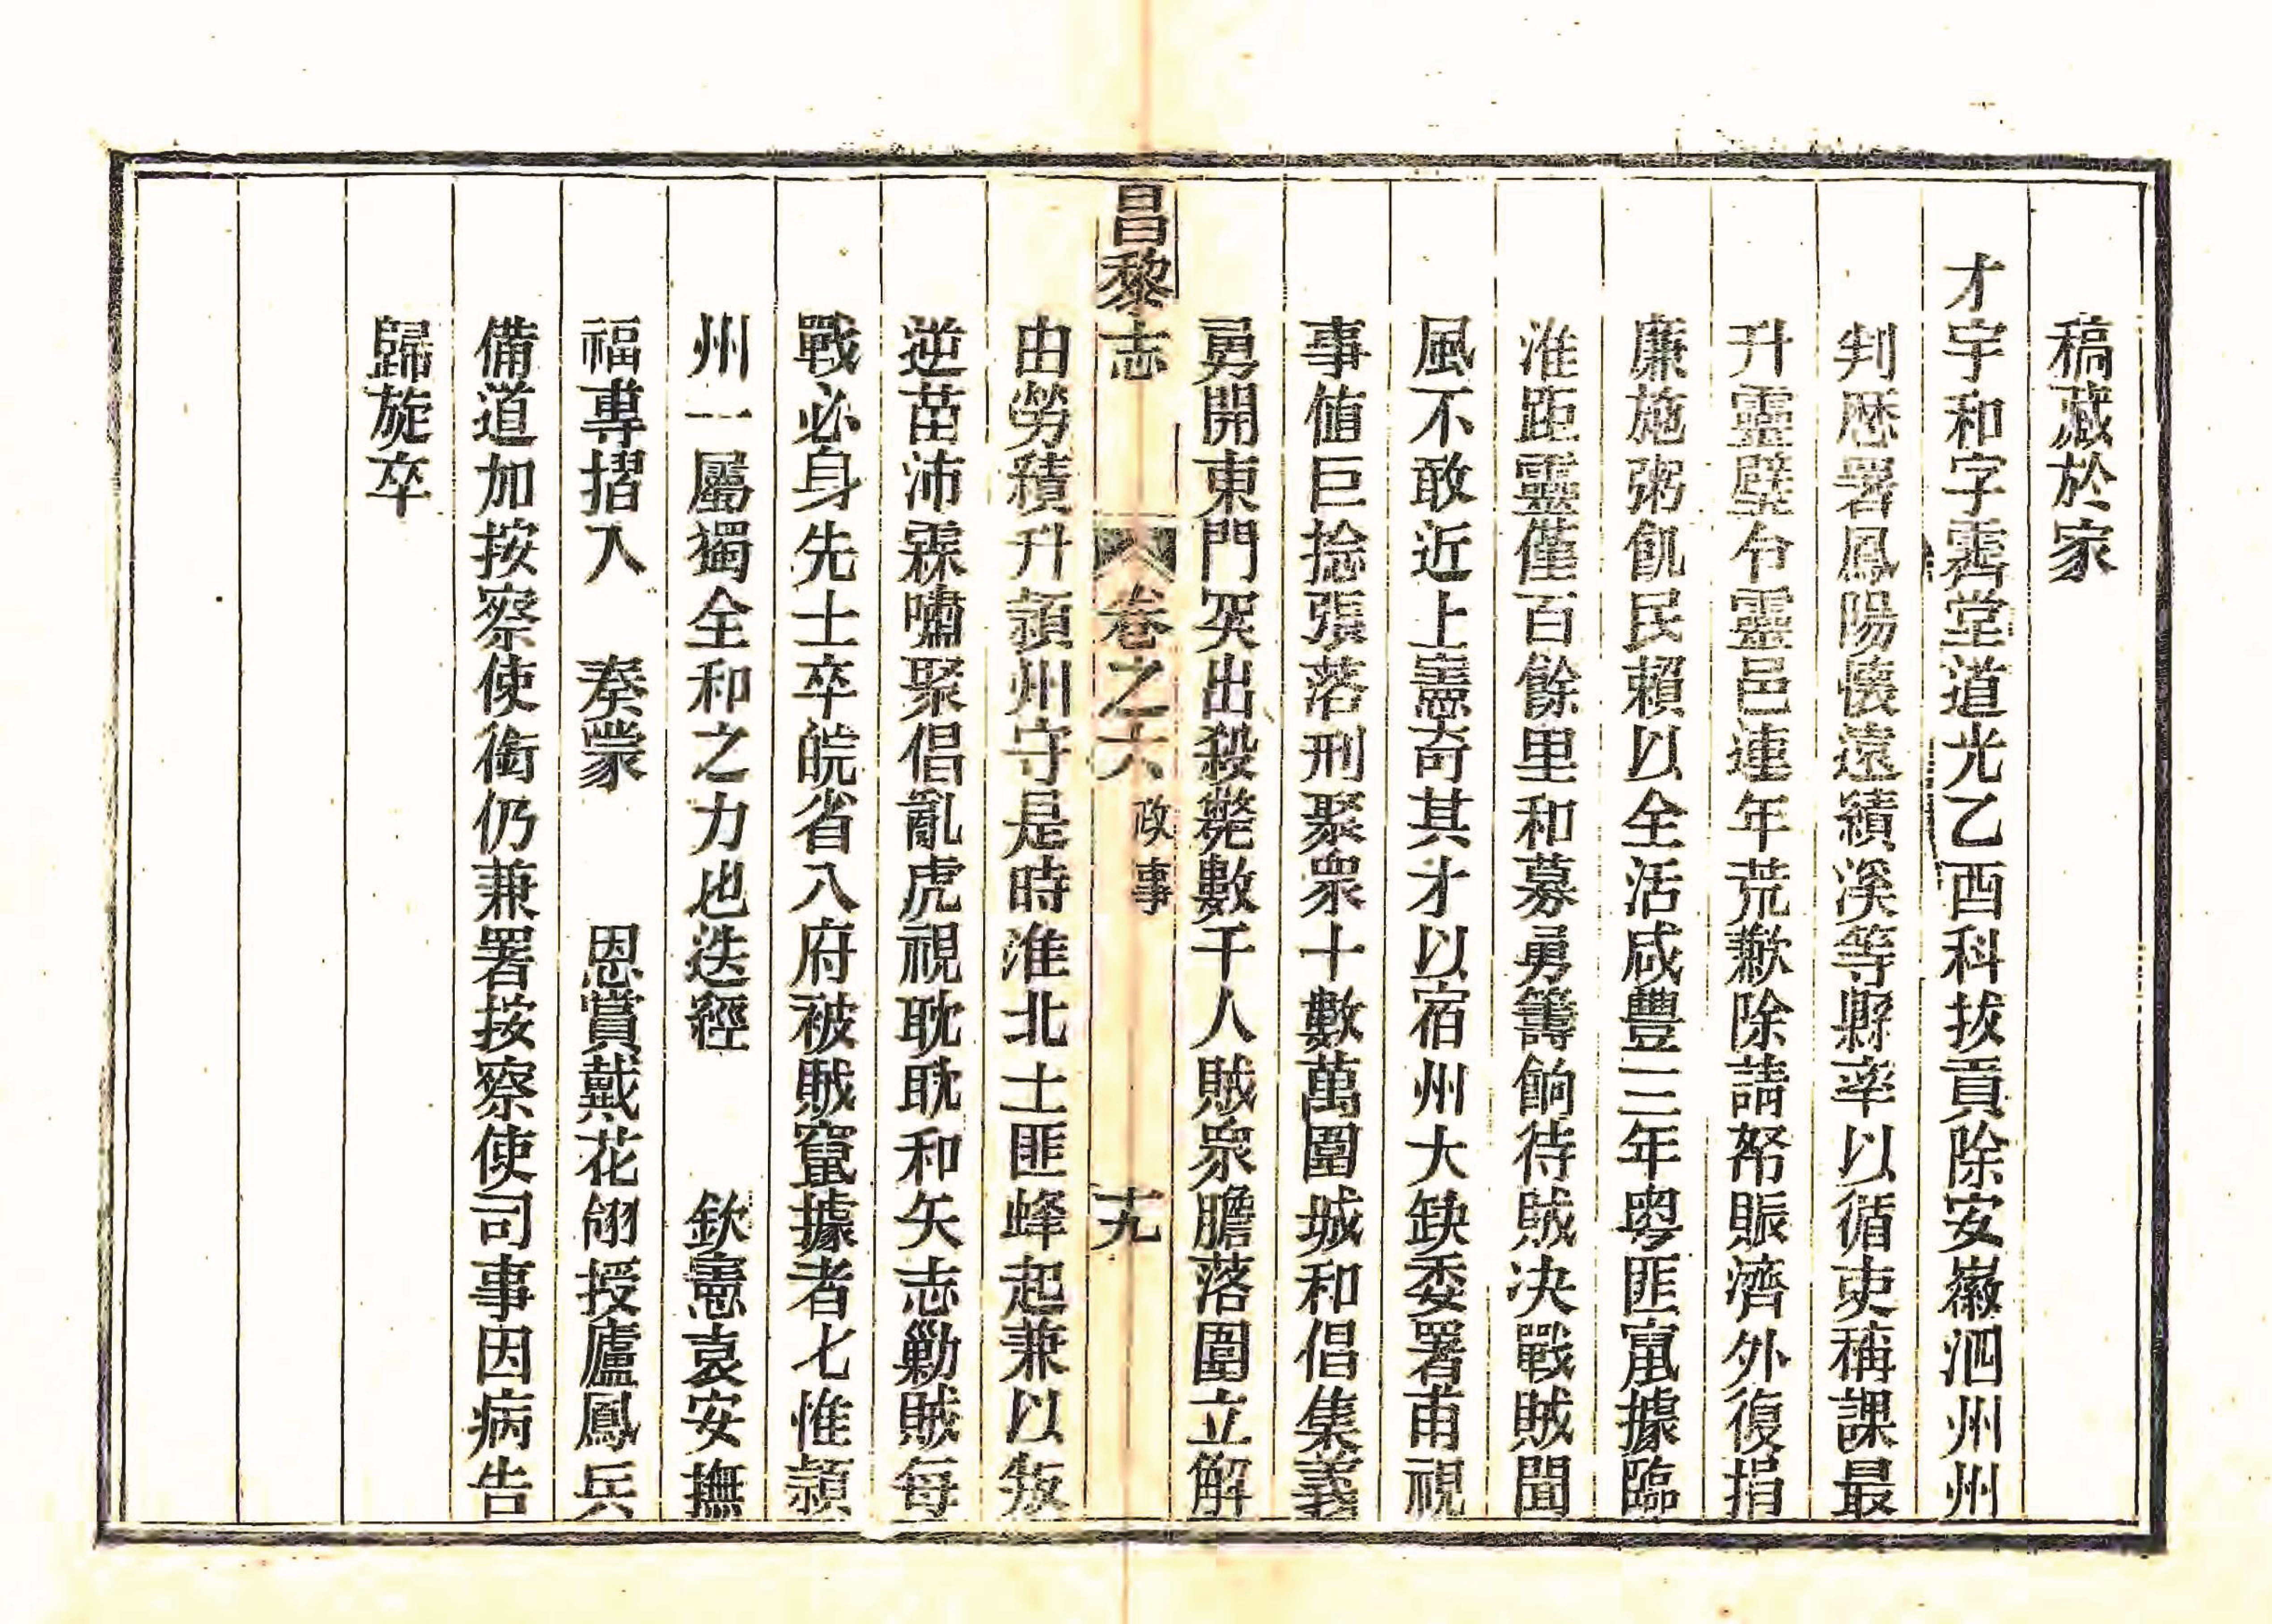 稿藏於家
才宇和字霽堂道光乙酉科拔貢除安徽泗州州
判歷署鳳陽懷遠績溪等縣率以循吏稱課最
升靈璧令靈邑連年荒歉除請帑賑濟外復捐
廉施粥飢民賴以全活咸豐三年粵匪竄據臨
淮距靈僅百餘里和募勇籌餉待賊決戰賊聞
風不敢近上憲奇其才以宿州大缺委署甫視
事值巨捻張落刑聚衆十數萬圍城和倡集義
勇開東門突出殺斃數千人賊衆膽落圍立解
昌黎志 卷之六 政事 十九
由勞績升潁州守是時淮北土匪蜂起兼以叛
逆苗沛霖嘯聚倡亂虎視耽耽和矢志勦賊每
戰必身先士卒皖省八府被賊竄據者七惟潁
州一屬獨全和之力也迭經 欽憲袁安撫
福專摺入 奏蒙 恩賞戴花翎授廬鳳兵
備道加按察使銜仍兼署按察使司事因病告
歸旋卒